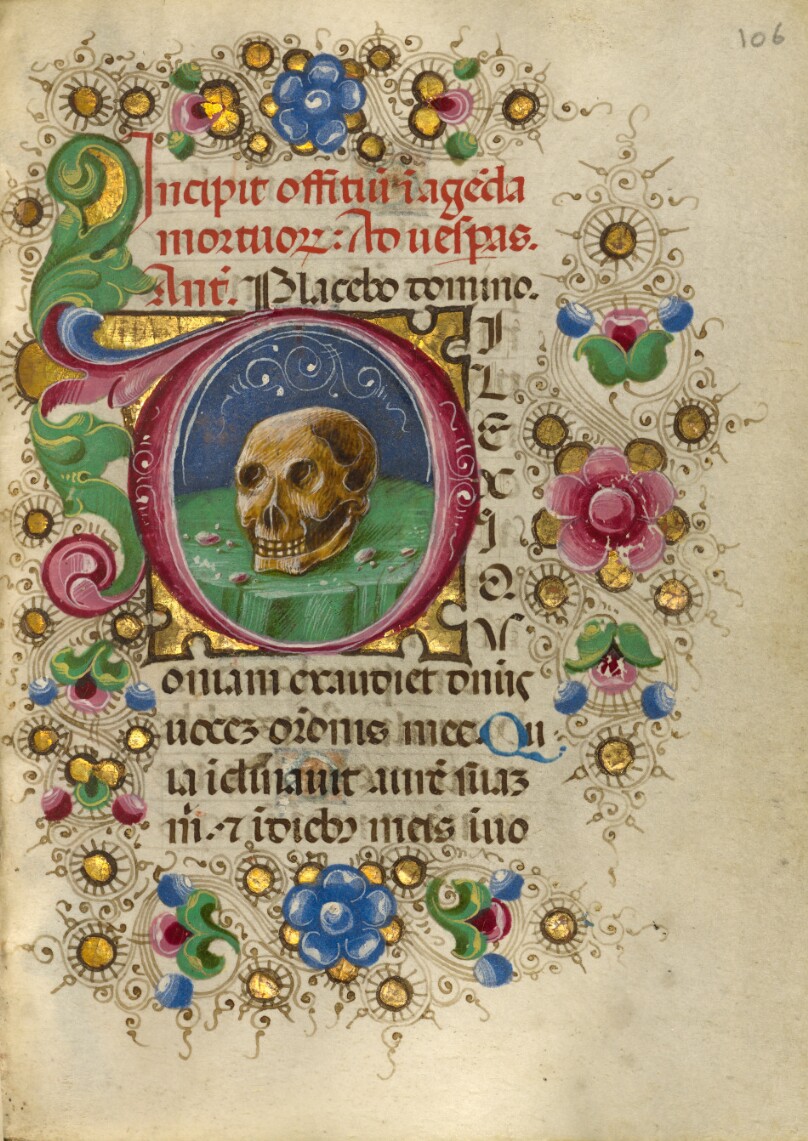 106
Incipit offitiū ī agēda
mortuoꝝ: Ad uesꝑas.
Ant̄. Placebo domino.
D
I
L
E
X
I
Q
V
oniam exaudiet dn̄s
uocez or̄onis mee. Qu
ia īclinauit aurē suaz
m̄. ⁊ ī diebꝫ meis īuo